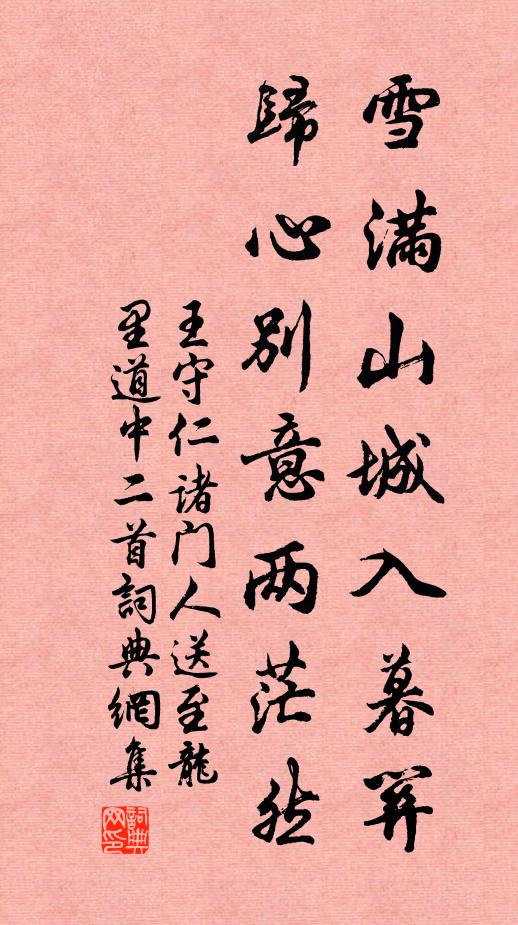 雪满山城入暮
歸心別意两茫然
王守仁诸门人送至龍
里道中二首詞典網集
詞典
网印